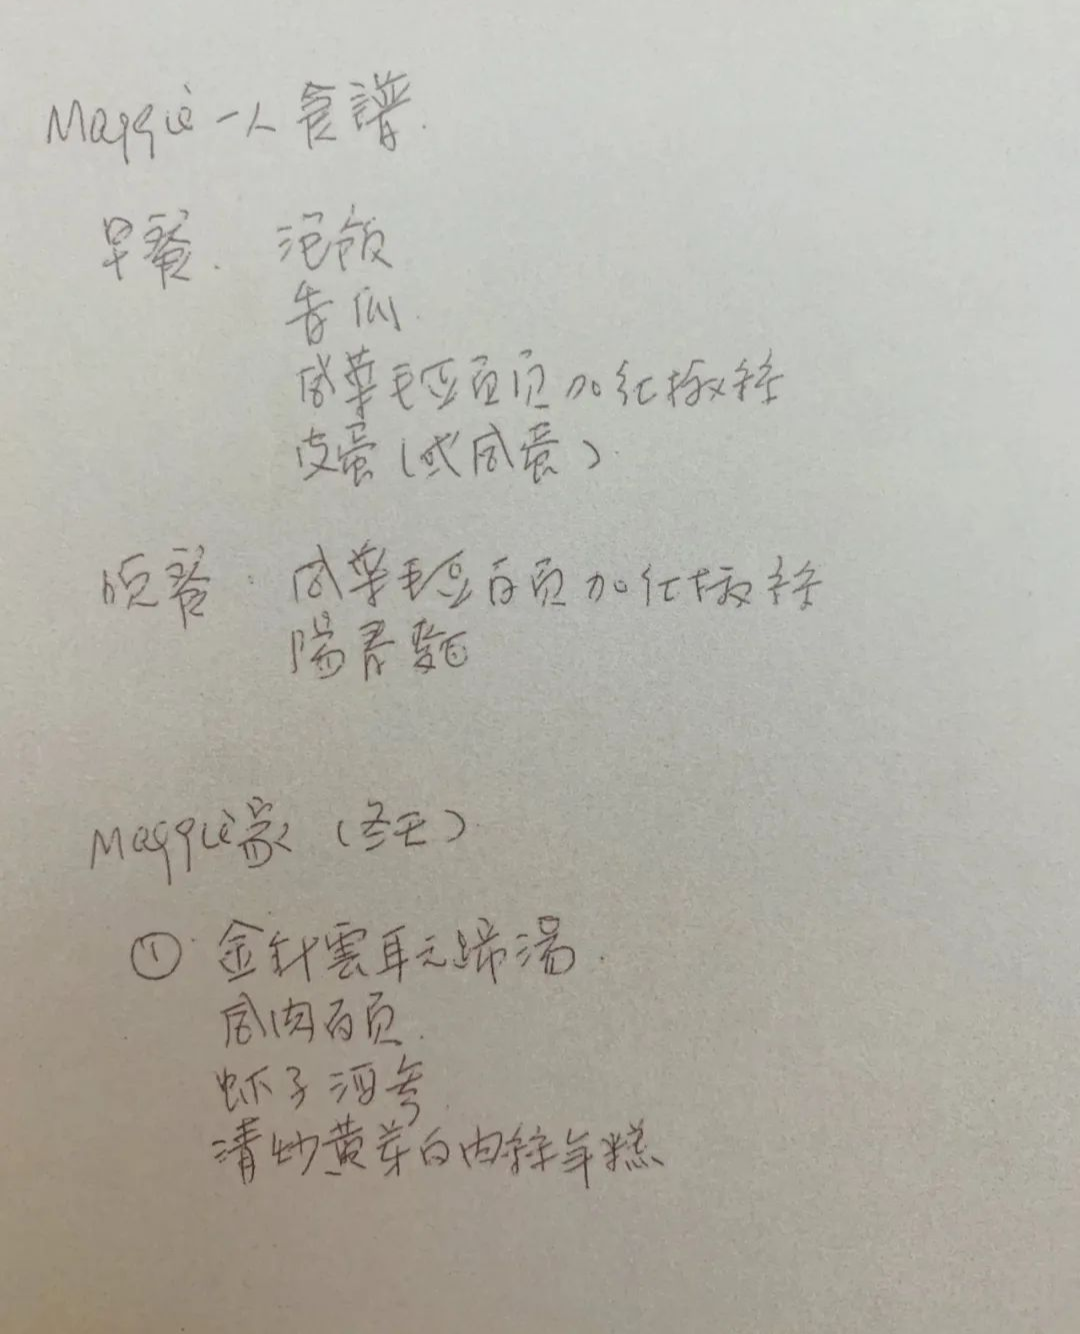 Maggie一人食譜.
早餐. 泡飯
香瓜.
咸菜毛豆百页加红椒絲
皮蛋(或咸蛋)
晚餐. 咸菜毛豆百页加红椒絲
陽春麵
Maggie家(冬天)
① 金針雲耳元蹄湯.
咸肉百页.
虾子
清炒黄芽白肉絲年糕